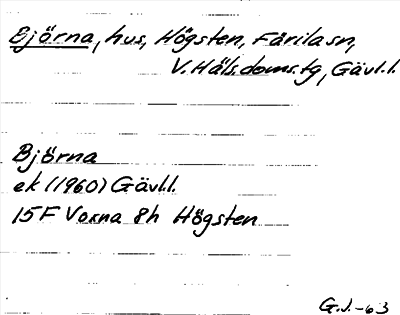 Björna, hus, Högsten, Färila sn,
V. Häls. doms. tg, Gävl. l.
Björna
ek (1960) Gävl. l.
15F Voxna 8h Högsten
G.J. -63